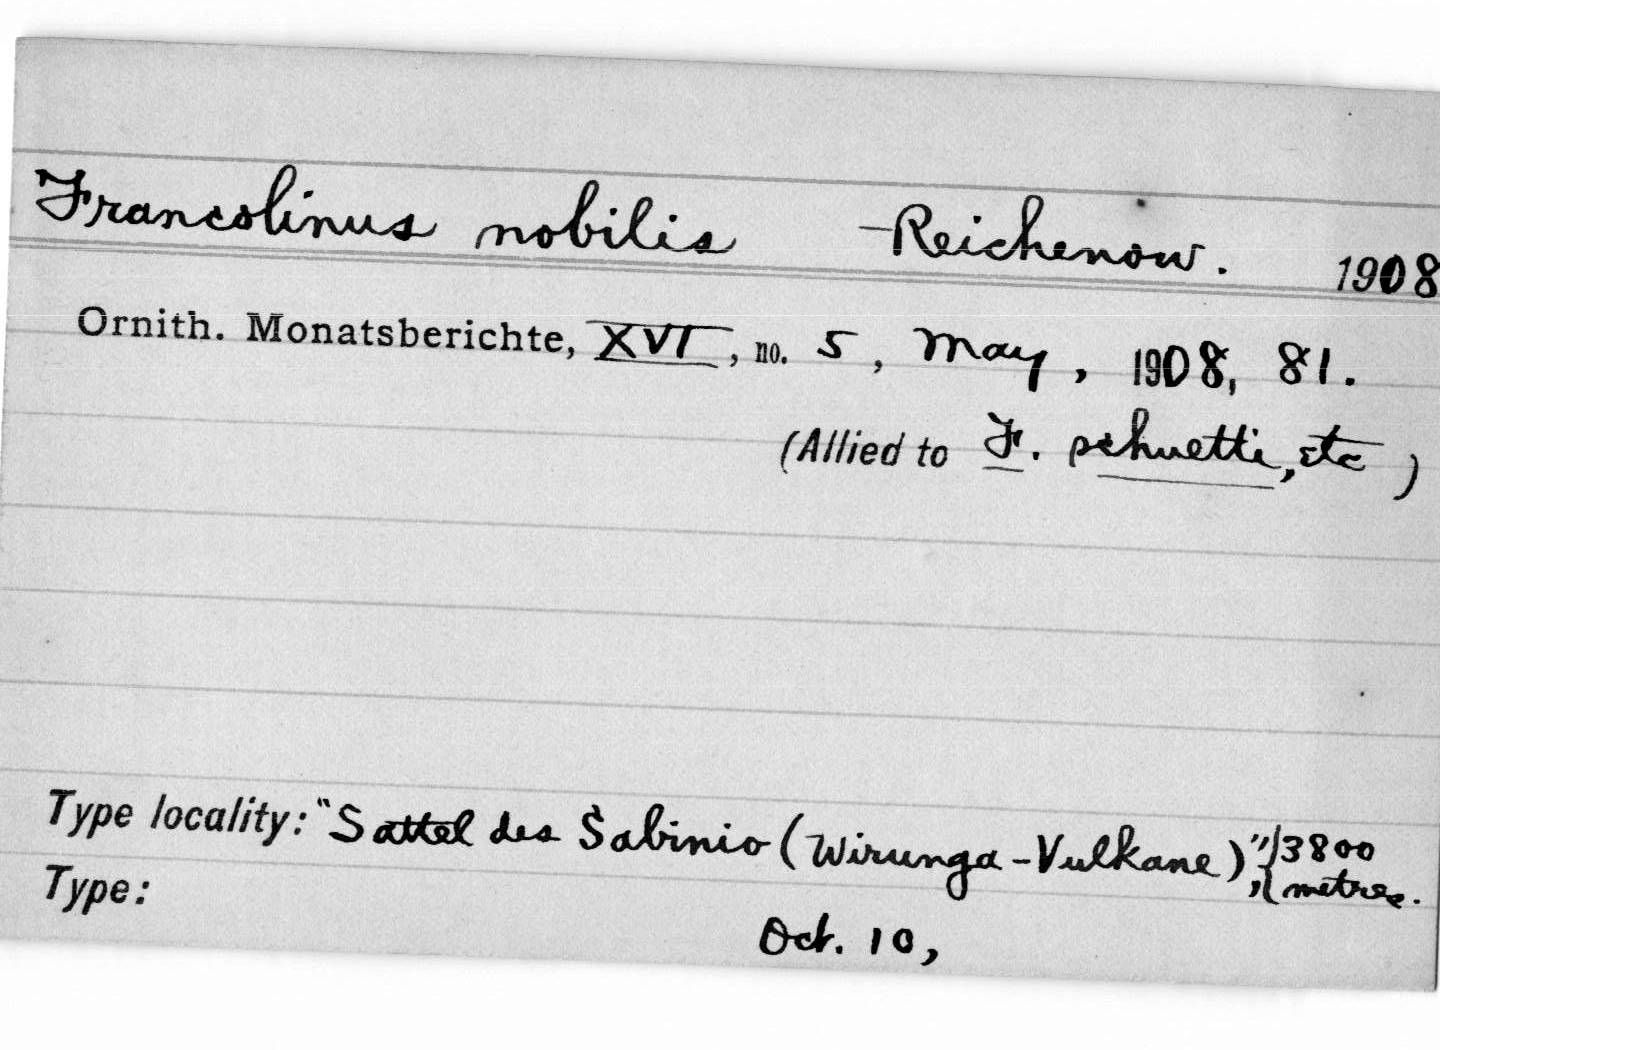 Francolinus nobilis Reichenow. 1908
Ornith. Monatsberichte, XVI, no. 5, May, 1908, 81.
(Allied to F. schuetti, etc)
Type locality: "Sattel des Sabinio (Wirunga-Vulkane)", 3800
metres.
Type:
Oct. 10,